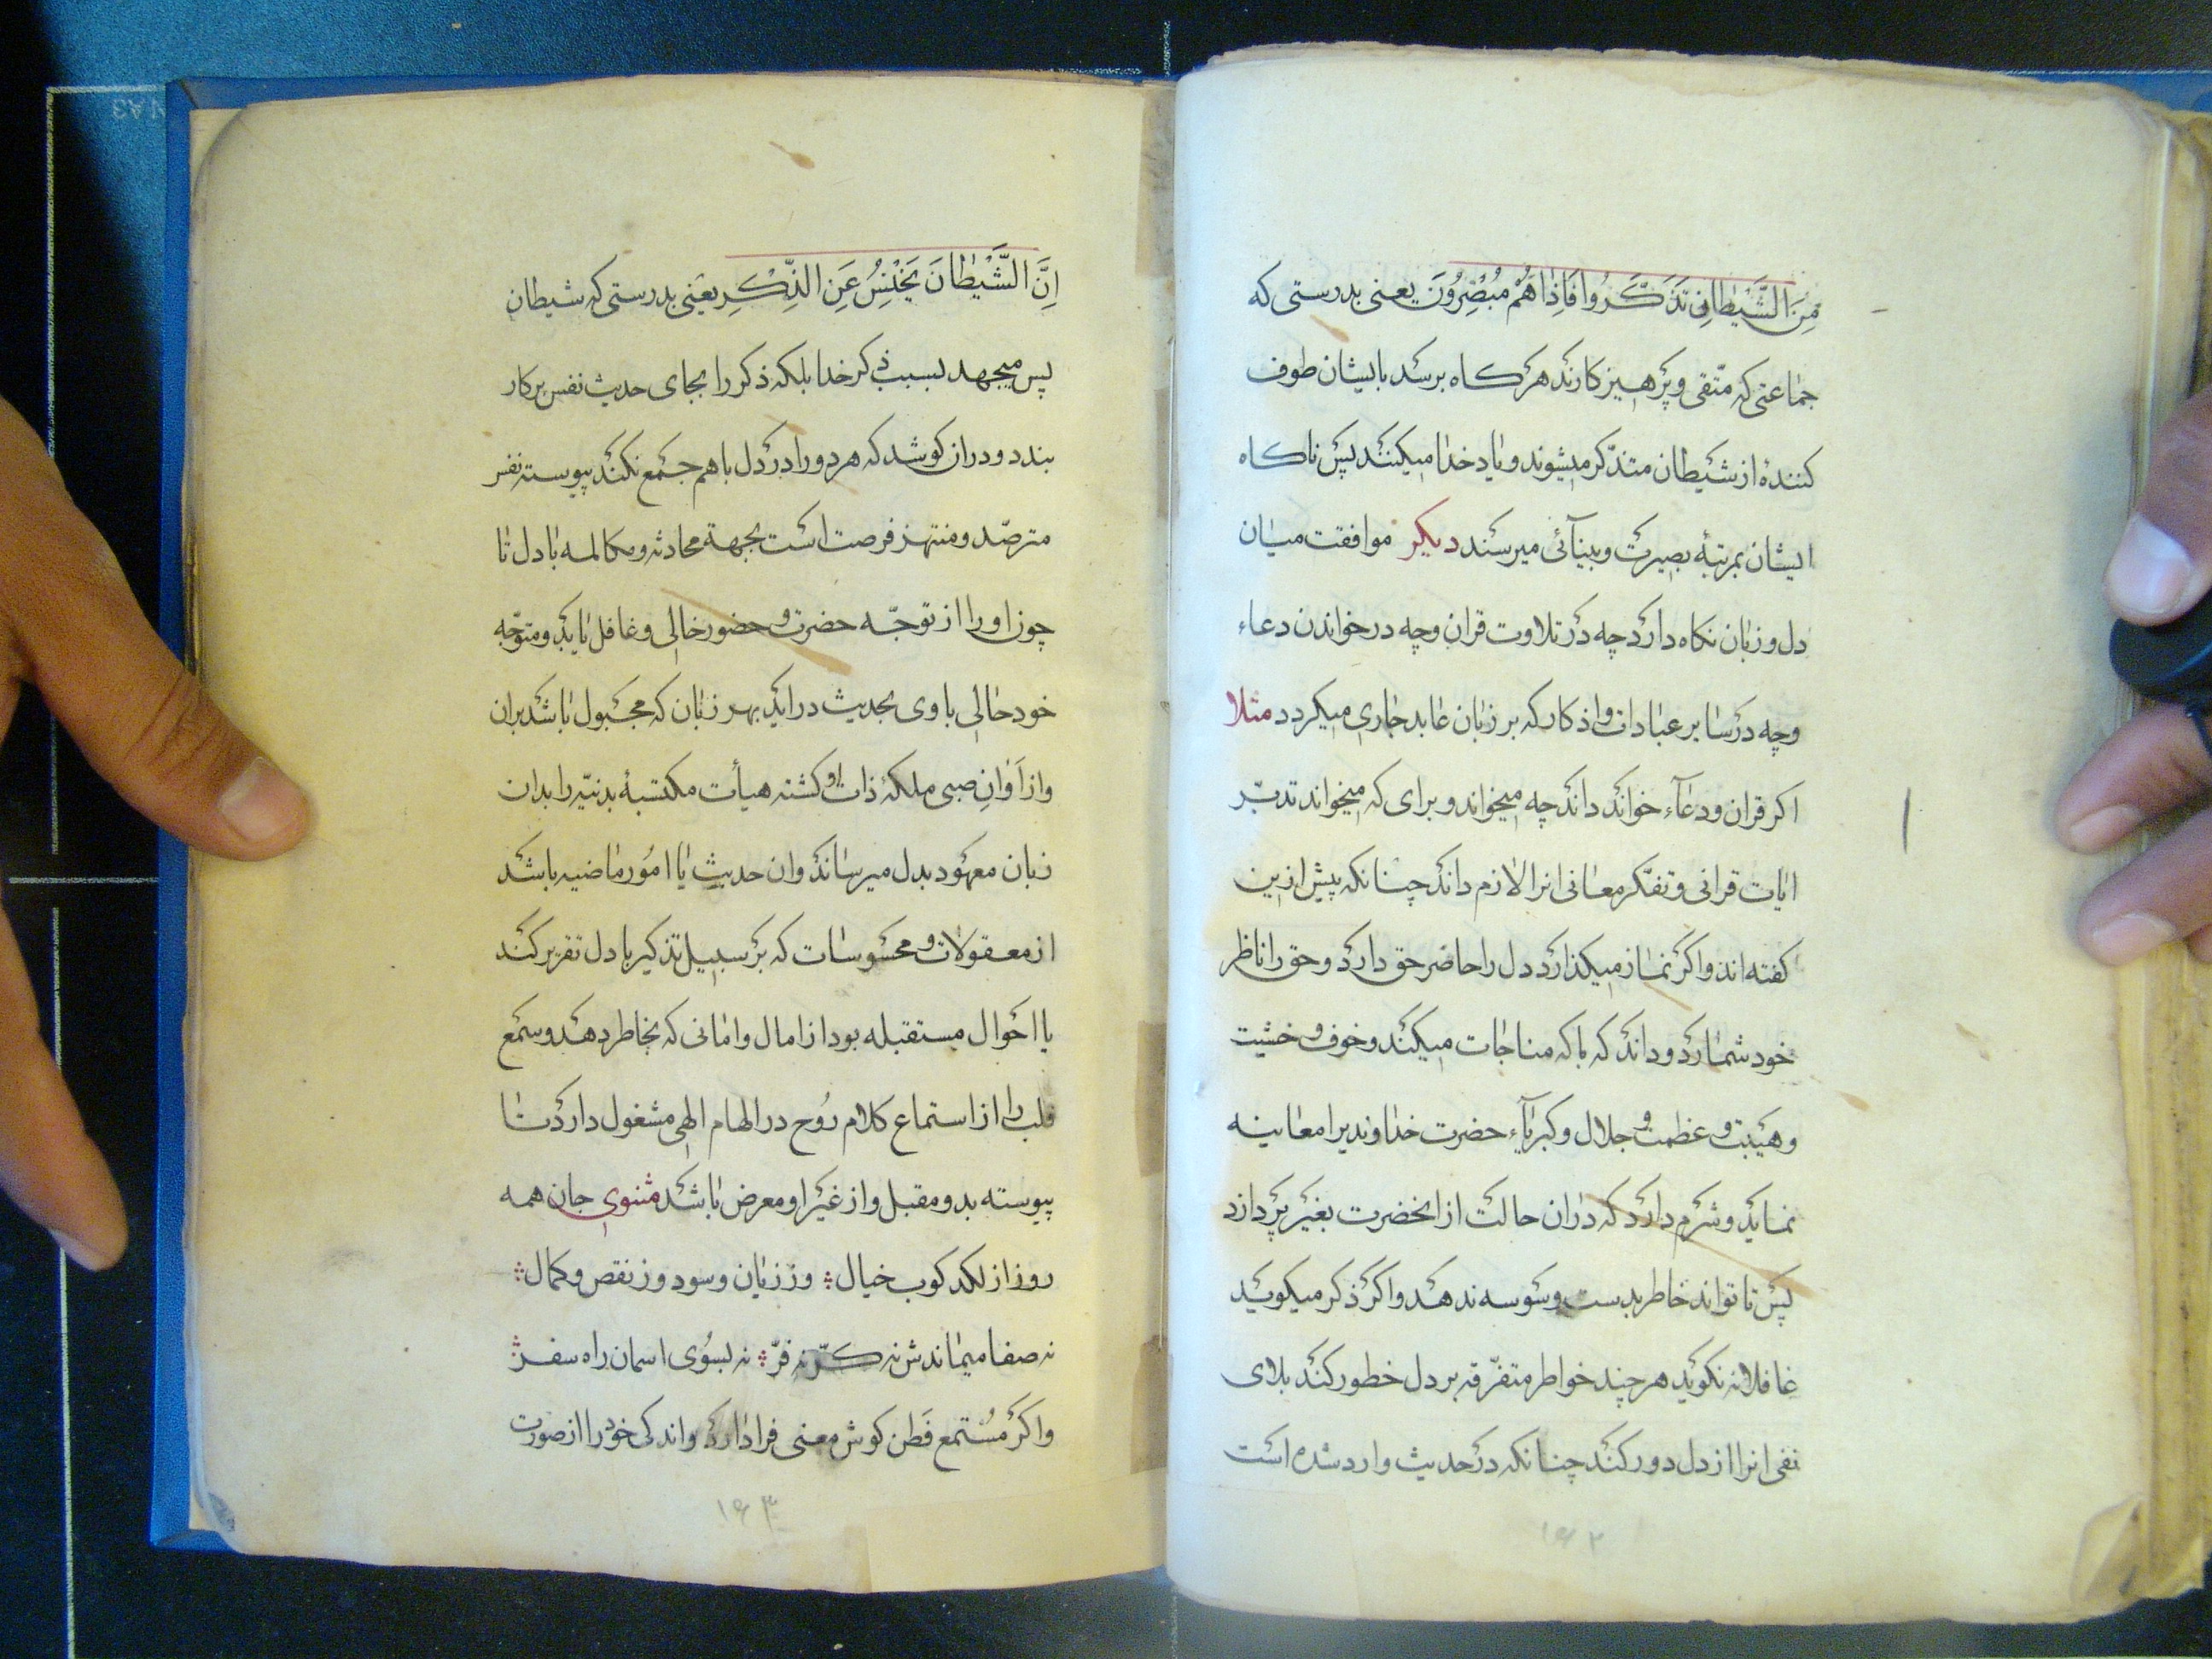 مِنَ الشَّيْطانِ تَذَكَّرُوا فَاِذاهُمْ مُبْصِرُونَ يعنی بدرستی که
جماعتی که متّقی و پرهیز کارند هرکاه برسد بایشان طوف
کنندهٔ از شیطان متذکّر میشوند و یاد خدا میکنند پس ناکاه
ایشان بمرتبهٔ بصیرت و بینآئی میرسند دیکر موافقت میان
دل و زبان نکاه دارد چه در تلاوت قران و چه در خواندن دعاء
وچه در سایر عبادات و اذکار که بر زبان عابد جاری میکردد مثلا
اکر قران و دعآء خواند داند چه میخواند و برای که میخواند تدبّر
ایات قرانی و تفکّر معانی انرا لازم داند چنانکه پیش ازین
کفته اند و اکر نماز میکذارد دل را حاضر حق دارد و حق را ناظر
خود شمارد و داند که با که مناجات میکند و خوف و خشیت
و هیبت و عظمت و جلال و کبریآء حضرت خداوندیرا معاینه
نماید و شرم دارد که دران حالت از انحضرت بغیر پردازد
پس تا تواند خاطر بدست وسوسه ندهد و اکر ذکر میکوید
غافلانه نکوید هر چند خواطر متفرّقه بر دل خطور کند بلای
نفی انرا از دل دور کند چنانکه در حدیث وارد شده است
۱۶۲
اِنَّ الشَّيْطانَ يَخْنِسُ عَنِ الذِّكْرِ یعنی بدرستی که شیطان
پس میجهد بسبب ذکر خدا بلکه ذکر را بجای حدیث نفس برکار
بندد و دران کوشد که هر دو را در دل با هم جمع نکند پیوسته نفس
مترصّد و منتهز فرصت است بجهة محادثه و مکالمه با دل تا
چون او را از توجّه حضرت و حضور خالی و غافل یابد و متوجّه
خود حالی با وی بحدیث دراید بهر زبان که مجبول باشد بران
و از اَوانِ صبی ملکهٔ ذات او کشته هیأت مکتسبهٔ بدنیّه را بدان
زبان معهود بدل میرساند و ان حدیث یا امُور ماضیه باشد
از معقولات و محسوسات که بر سبیل تذکیر با دل تقریر کند
یا احوال مستقبله بود از امال و امانی که بخاطر دهد و سمع
قلب را از استماع کلام رُوح در الهام الهی مشغول دارد تا
پیوسته بدو مقبل و از غیر او معرض باشد مثنوی جان همه
روز از لکد کوب خیال ؞ وز زیان و سود وز نقص و کمال ؞
نه صفا میماندش نه کرّ نه فرّ ؞ نه بسوُی اسمان راه سفر ؞
و اکر مُستمع فَطن کوش معنی فرا دارد و اندکی خود را از صورت
۱۶۳